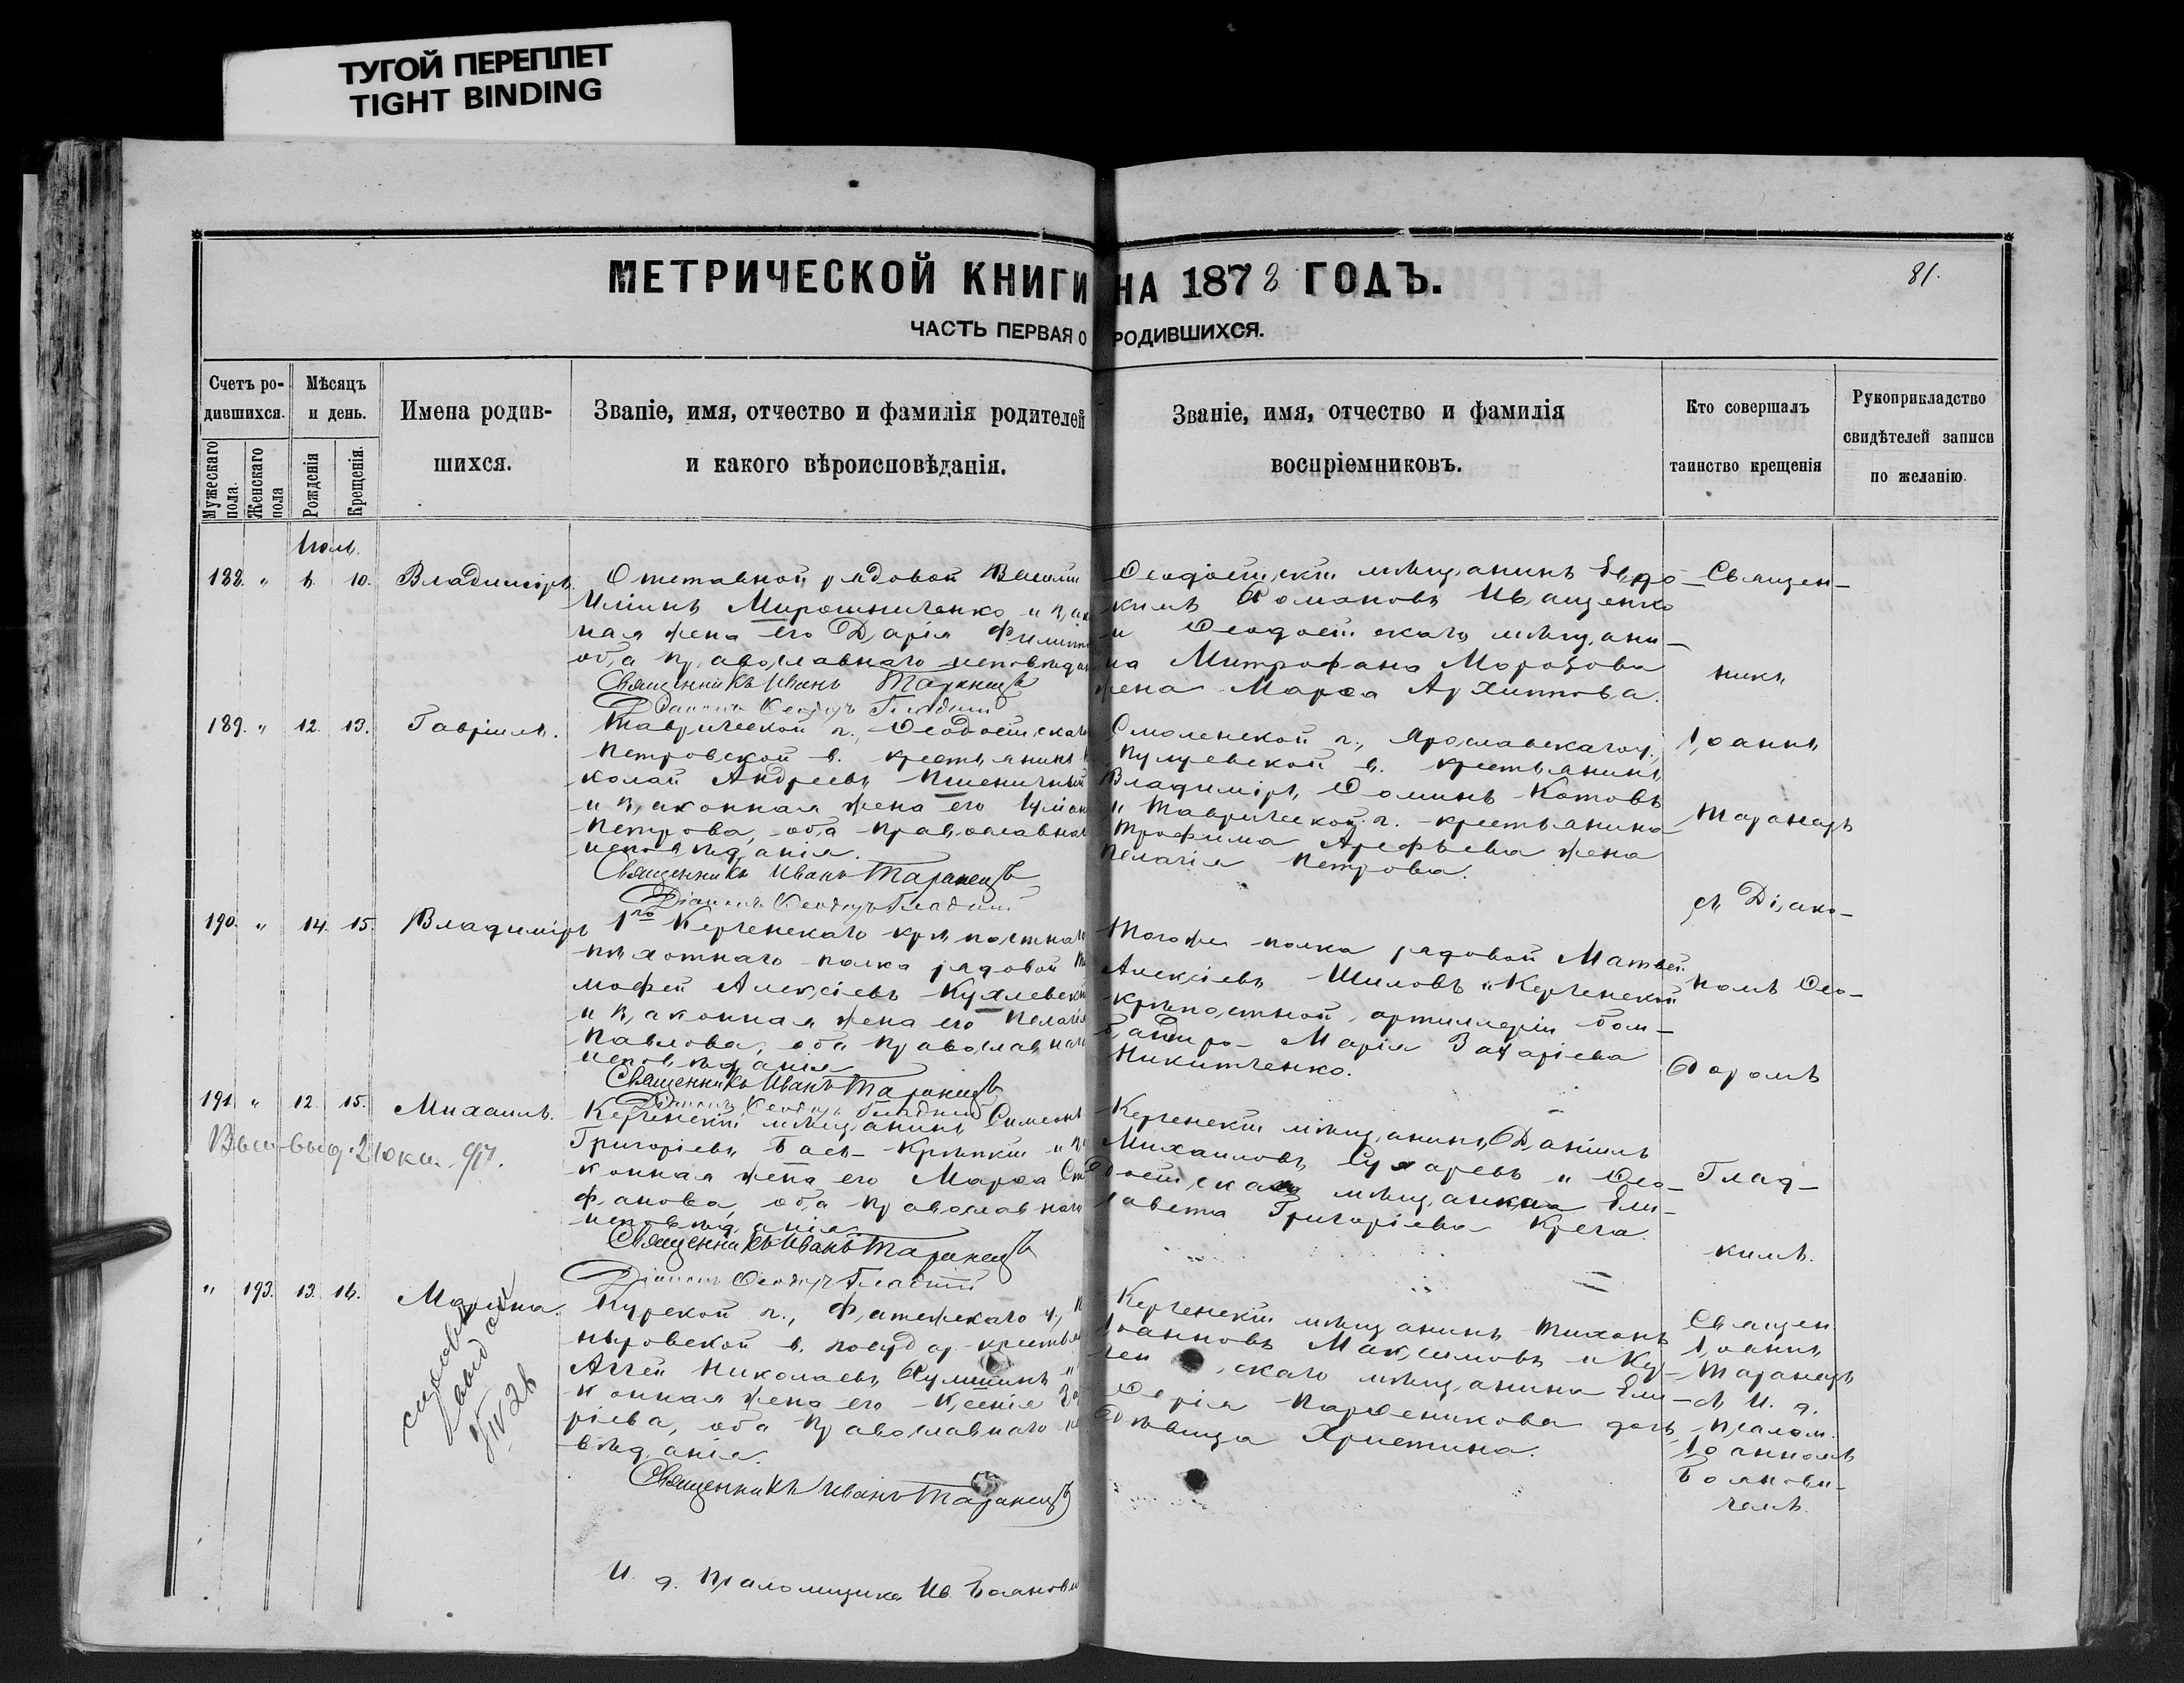 ТУГОЙ ПЕРЕПЛЕТ
TIGHT BINDING
МЕТРИЧЕСКОЙ КНИГИ НА 1878 ГОДЪ.
81.
ЧАСТЬ ПЕРВАЯ О РОДИВШИХСЯ.
Счетъ ро-
дившихся.
Мужескаго пола.
Женскаго пола
Мѣсяцъ
и день.
Рожденія
Крещенія.
Имена родив-
шихся.
Званіе, имя, отчество и фамилія родителей
и какого вѣроисповѣданія.
Званіе, имя, отчество и фамилія
воспріемниковъ.
Кто совершалъ
таинство крещенія
Рукоприкладство
свидѣтелей записи
по желанію.
Іюль.
188. " 6. 10. Владиміръ.
Отставной рядовой Василій
Ильинъ Мирошниченко и зак
ная жена его Дарія Филипп
оба православнаго исповѣдан
Священникъ Иванъ Таранецъ
Діаконъ Ѳеодоръ Гладкій
Ѳеодосійскій мѣщанинъ Евдо-
кимъ Романовъ Иващенко
и Ѳеодосійскаго мѣщани-
на Митрофана Морозова
жена Марѳа Архиппова.
189. " 12. 13. Гавріилъ.
Таврической г., Ѳеодосійскаго
Петровской в. крестьянинъ
колай Андреевъ Пшеничный
и законная жена его Іуліан
Петрова, оба православнаго
исповѣданія.
Священникъ Иванъ Таранецъ
Діаконъ Ѳеодоръ Гладкій
Смоленской г.,
в. крестьянинъ
Владиміръ Ѳоминъ Котовъ
и Таврической г. крестьянина
Трофима Арефьева жена
Пелагія Петрова.
190. " 14. 15. Владиміръ
1го Керченскаго крѣпостнаго
пѣхотнаго полка рядовой Ти
мофей Алексіевъ Кухлевскій
и законная жена его Пелагія
Павлова, оба православнаго
исповѣданія
Священникъ Иванъ Таранецъ
Діаконъ Ѳеодоръ Гладкій
Тогоже полка рядовой Матвей
Алексіевъ Шиловъ и Керченской
крѣпостной артиллеріи бом-
бандиро- Марія Захаріева
Никитченко.
191. " 12. 15. Михаилъ.
Керченскій мѣщанинъ Симеонъ
Григоріевъ Басъ-Крѣпкій и за
конная жена его Марѳа Сте
фанова, оба православнаго
исповѣданія
Священникъ Иванъ Таранецъ
Діаконъ Ѳеодоръ Гладкій
Керченскій мѣщанинъ Даніилъ
Михаиловъ Сухаревъ и Ѳео-
досійская мѣщанка Ели-
савета Григоріева Креча.
" 193. 13. 16. Марина.
Курской г., Фатежскаго у.,
ныровской в. государ. крестьян
Аггей Николаевъ
конная жена его Ксенія За
ріева, оба православнаго
вѣданія.
Священникъ Иванъ Таранецъ
И. д. Псаломщика Ив. Боянович
Керченскій мѣщанинъ Тихонъ
Іоанновъ Максимовъ и Кер-
ченскаго мѣщанина Ели-
Парѳеникова дочь
дѣвица Христина.
Священ-
никъ
Іоаннъ
Таранецъ
съ Діако-
номъ Ѳео-
доромъ
Глад-
кимъ.
Священ.
Іоаннъ
Таранецъ
съ И. д.
псалом.
Іоанномъ
Боянови-
чемъ.